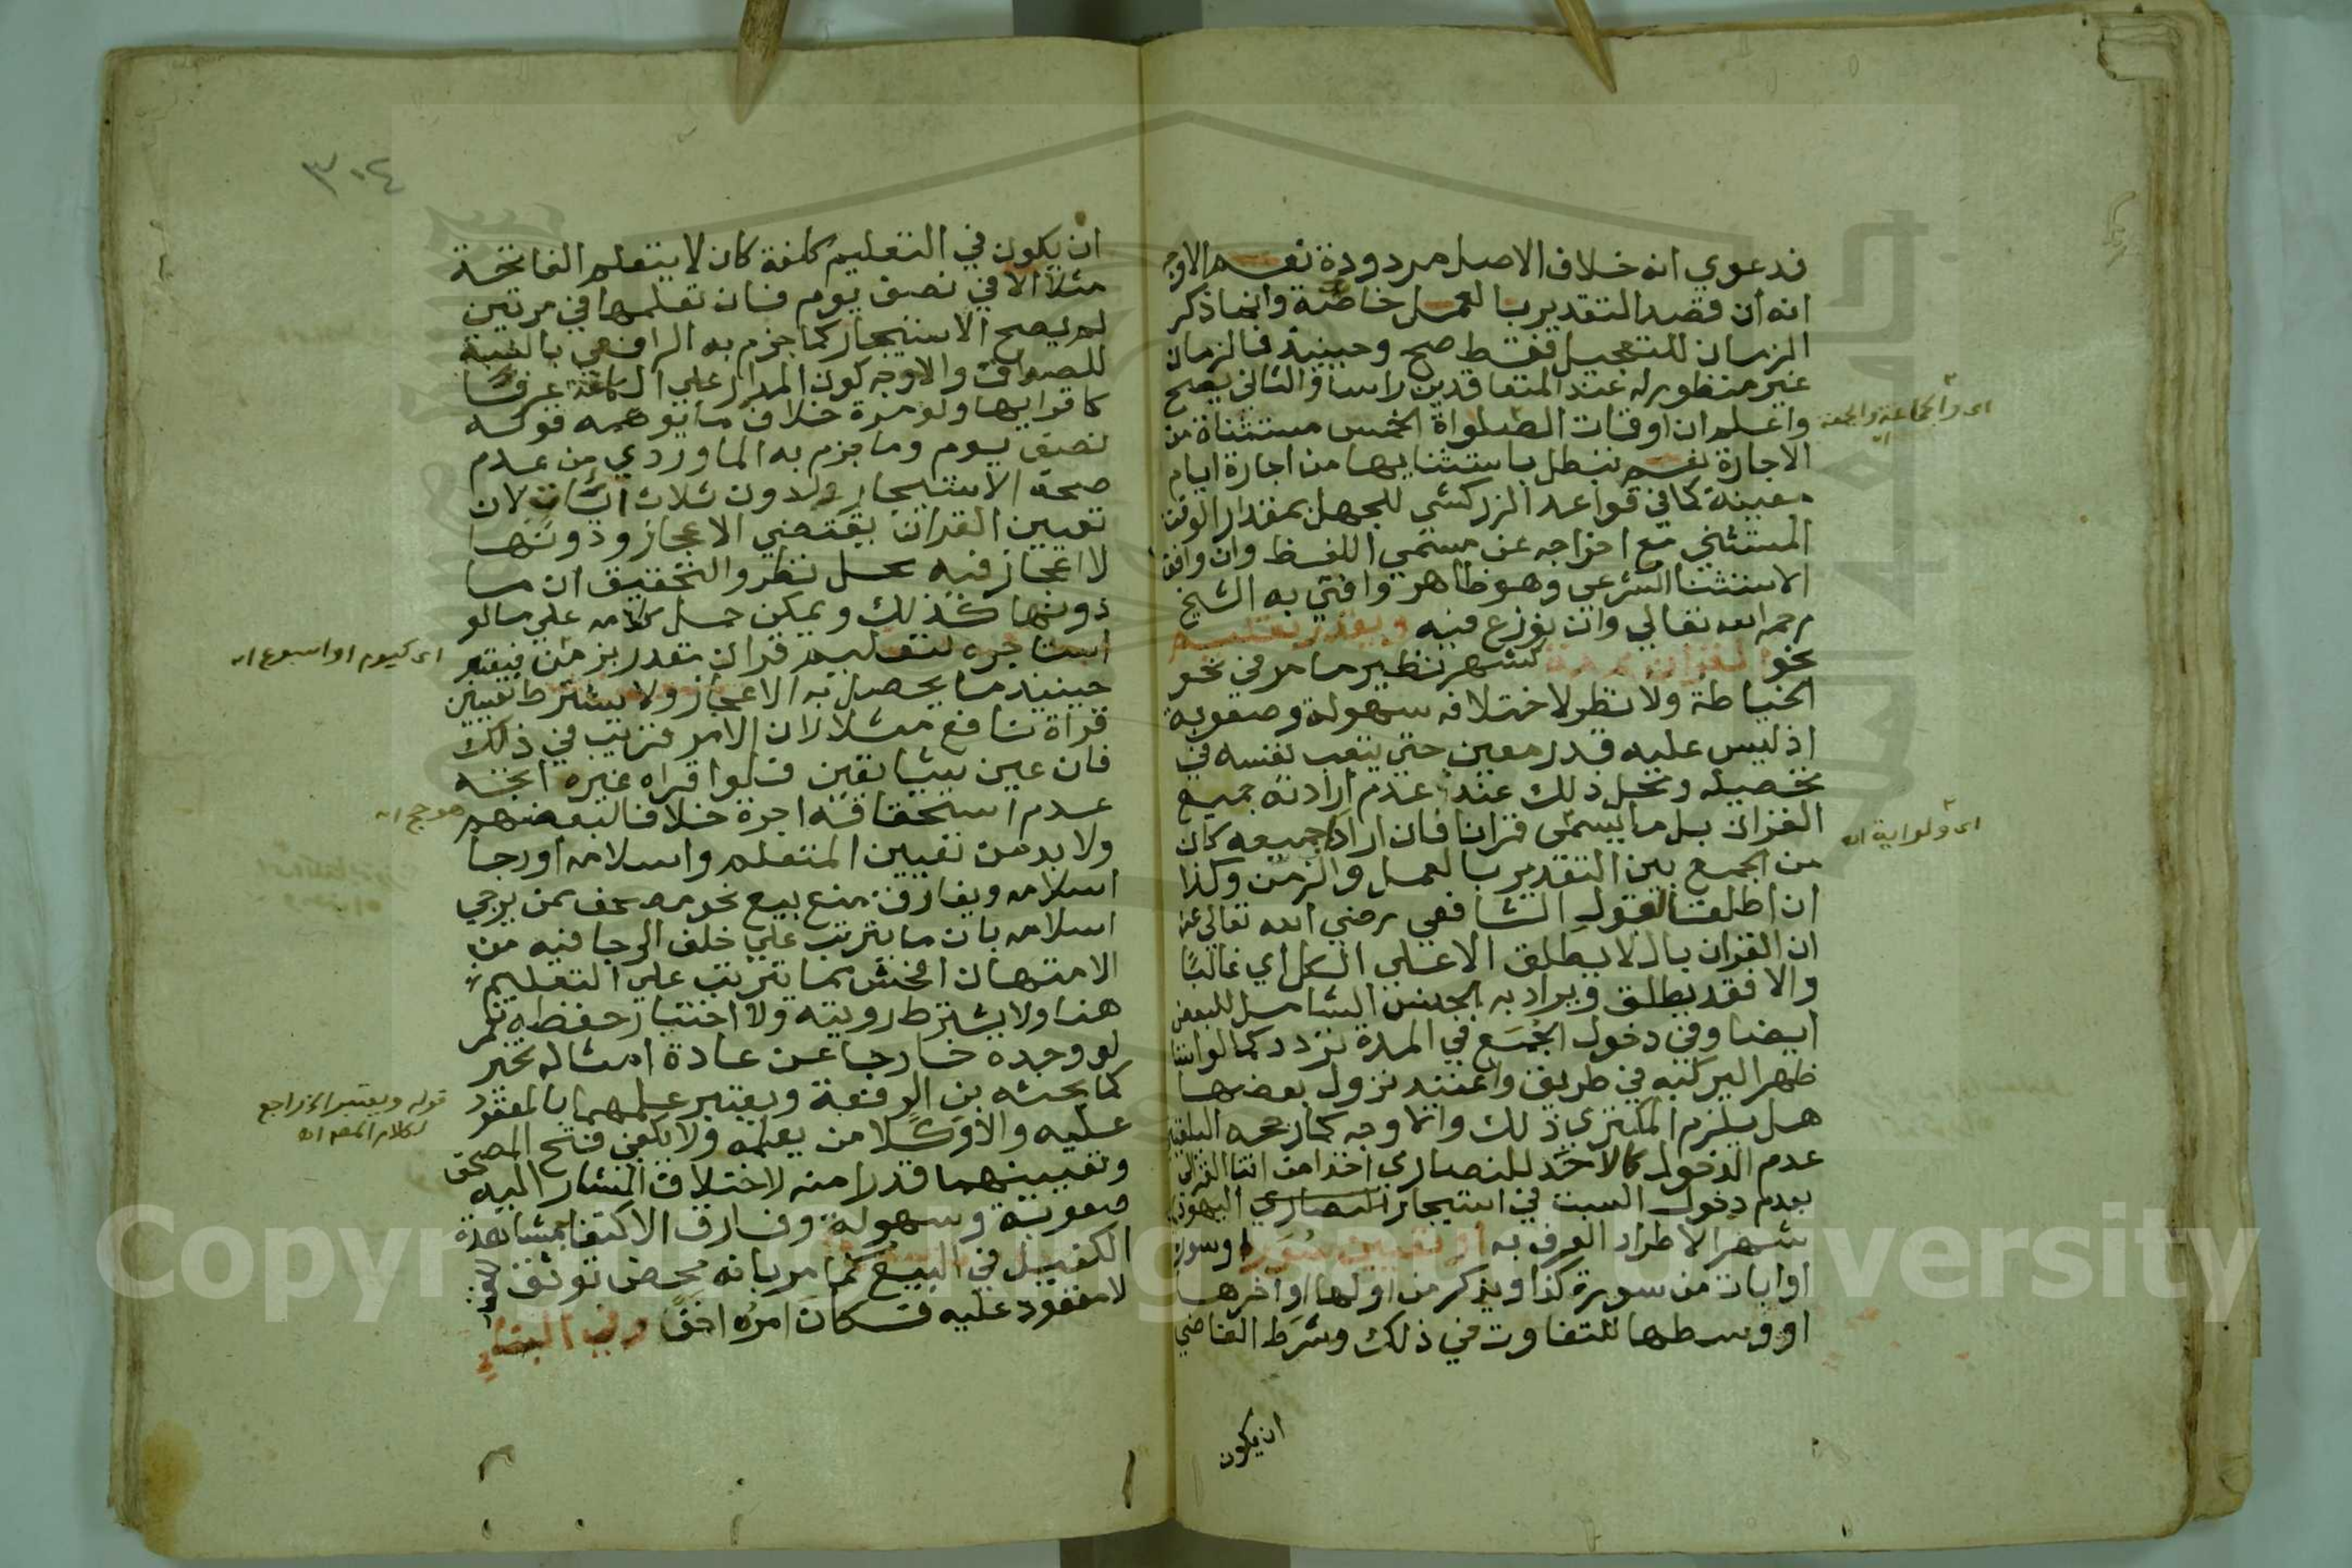 فدعوي انه خلاف الاصل مردودة نعم الاوجه
انه ان قصد التقدير بالعمل خاصة وانما ذكر
الزمان للتعجيل فقط صح وحينئذ فالزمان
غير منظور له عند المتعاقدين راسا والثاني يصح
واعلم ان اوقات الصلواة الخمس مستثناة من
الاجارة نعم تبطل باستثنايها من اجارة ايام
معينة كما في قواعد الزركشي للجهل بمقدار الوقت
المستثني مع اخراجه عن مسمي اللفظ وان وافق
الاستثنا الشرعي وهو ظاهر وافتي به الشيخ
رحمه الله تعالي وان نوزع فيه ويقدر تعليم
نحو القران بمدة كشهر نظير ما مر في نحو
الخياطة ولا نظر لاختلافه سهولة وصعوبة
اذ ليس عليه قدر معين حتي يتعب نفسه في
تحصيله ومحل ذلك عند عدم ارادته جميع
القران بل ما يسمى قرانا فان اراد جميعه كان
من الجمع بين التقدير بالعمل والزمن وكذا
ان اطلقا لقول الشافعي رضي الله تعالي عنه
ان القران بال لا يطلق الا علي الكل اي غالبا
والا فقد يطلق ويراد به الجنس الشامل للبعض
ايضا وفي دخول الجمع في المدة تردد كما لو استا
ظهرا ليركبه في طريق واعتيد نزول بعضها
هل يلزم المكتري ذلك والاوجه كما رجحه البلقيني
عدم الدخول كالاحد للنصاري اخذا من افتا الغزالي
بعدم دخول السبت في استيجار النصاري اليهودي
شهرا لاطراد العرف به او تعيين سور او سورة
او ايات من سورة كذا ويذكر من اولها او اخرها
او وسطها للتفاوت في ذلك وشرط القاضي
ان يكون
اي والجماعة والجمعة اه
اي ولو اية اه
٣٠٤
ان يكون في التعليم كلفة كان لا يتعلم الفاتحة
مثلا الا في نصف يوم فان تعلمها في مرتين
لم يصح الاستيجار كما جزم به الرافعي بالنسبة
للصداق والاوجه كون المدار علي الكلفة عرفا
كاقرايها ولو مرة خلاف ما يوهمه قوله
نصف يوم وما جزم به الماوردي من عدم
صحة الاستيجار لدون ثلاث ايات لان
تعيين القران يقتضي الاعجاز ودونها
لا اعجاز فيه محل نظر والتحقيق ان ما
دونها كذلك ويمكن حمل كلامه علي ما لو
استاجره لتعليم قران مقدر بزمن فيعتبر
حينيذ ما يحصل به الاعجاز ولا يشترط تعيين
قراة نافع مثلا لان الامر قريب في ذلك
فان عين شيا تعين فلو اقراه غيره اتجه
عدم استحقاقه اجرة خلافا لبعضهم
ولا بد من تعيين المتعلم واسلامه او رجا
اسلامه ويفارق منع بيع نحو مصحف ممن يرجي
اسلامه بان ما يترتب علي خلف الرجا فيه من
الامتهان افحش مما يترتب علي التعليم
هنا ولا يشترط رويته ولا اختبار حفظه نعم
لو وجده خارجا عن عادة امثاله تخير
كما بحثه بن الرفعة ويعتبر علمهما بالمعقود
عليه والا وكلا من يعلمه ولا يكفي فتح المصحف
وتعيينهما قدرا منه لاختلاف المشار اليه
صعوبة وسهولة وفارق الاكتفا بمشاهدة
الكفيل في البيع كما مر بانه محض توثق للعقد
لا معقود عليه فكان امره اخف وفي البنا
اي كيوم او اسبوع اه
هو حج اه
قوله ويعتبر الخ راجع
لكلام المص اه